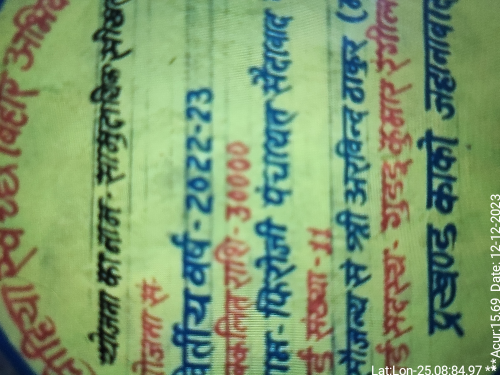 स्वच्छ बिहार अभि
योजना का नाम- सामुदायिक सोख्ता
योजना सं-
वित्तीय वर्ष - 2022-23
प्राक्कलित राशि- 30000
ग्राम- फिरोजी पंचायत सैदाबाद
वार्ड संख्या- 11
सौजन्य से श्री अरविन्द ठाकुर (
वार्ड सदस्य- गुड्डू कुमार रंगीला
प्रखण्ड काको जहानाबाद
Lat:Lon-25.08:84.97 **Acur:15.69 Date: 12-12-2023